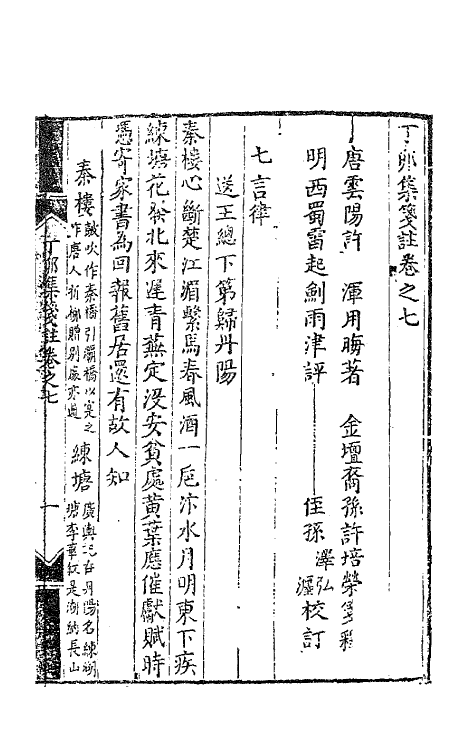 丁卯集箋註卷之七
唐雲陽許　渾用晦著　金壇裔孫許培榮箋釋
明西蜀雷起劍雨津評　侄孫澤弘灑校訂
七言律
送王總下第歸丹陽
秦樓心斷楚江湄繫馬春風酒一卮汴水月明東下疾
練塘花發北來遲青蕪定沒安貧處黃葉應催獻賦時
憑寄家書為回報舊居還有故人知
秦樓鼓吹作秦橋引灞橋以實之
作唐人折柳贈別處亦通
練塘廣輿記在丹陽名練湖
塘李華紅是湖納長山
丁卯集箋註卷之七
一